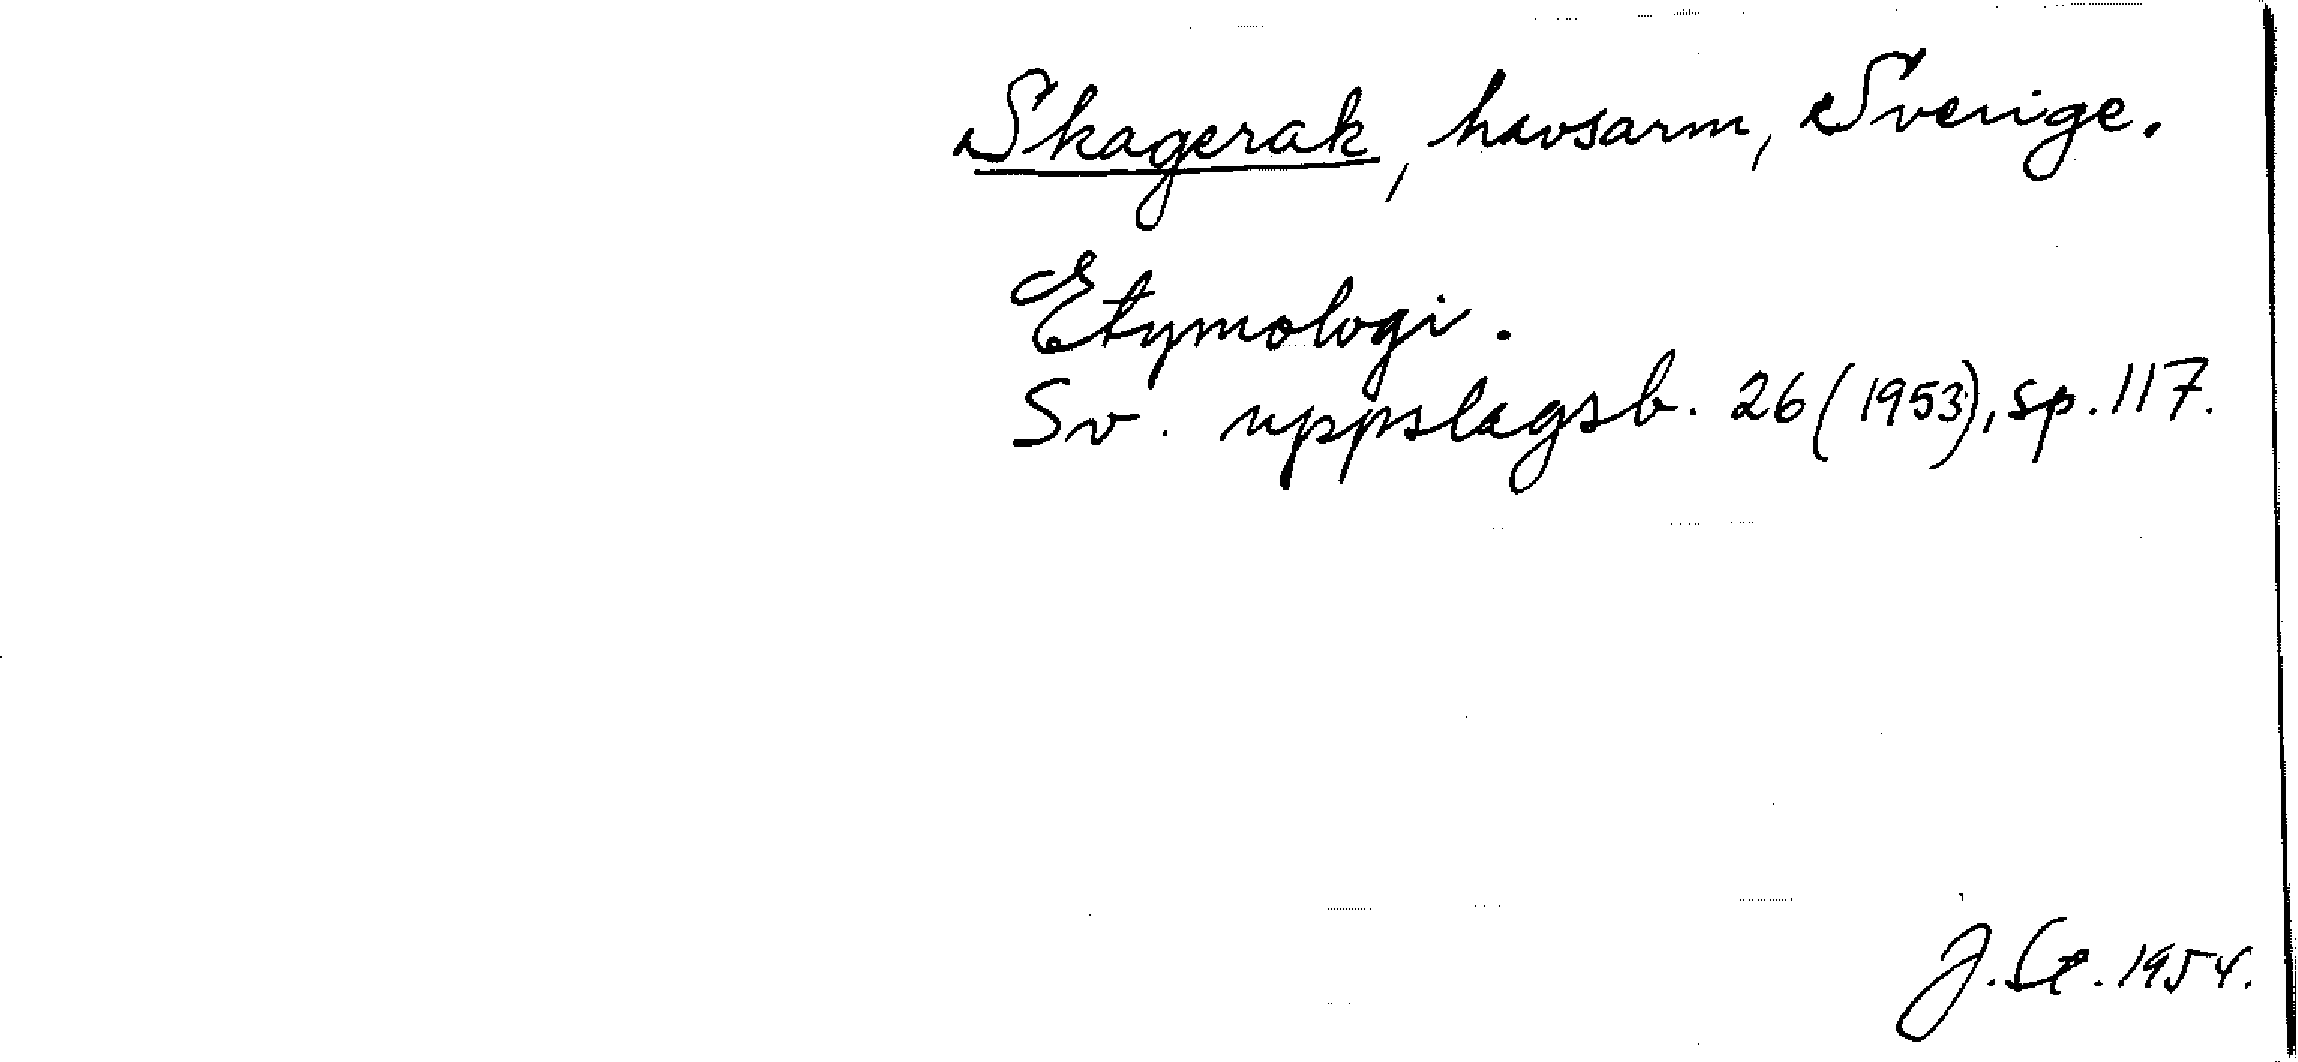 Skagerak, havsarm, Sverige.
Etymologi.
Sv. uppslagsb. 26 (1953), sp. 117.
J. G. 1954.